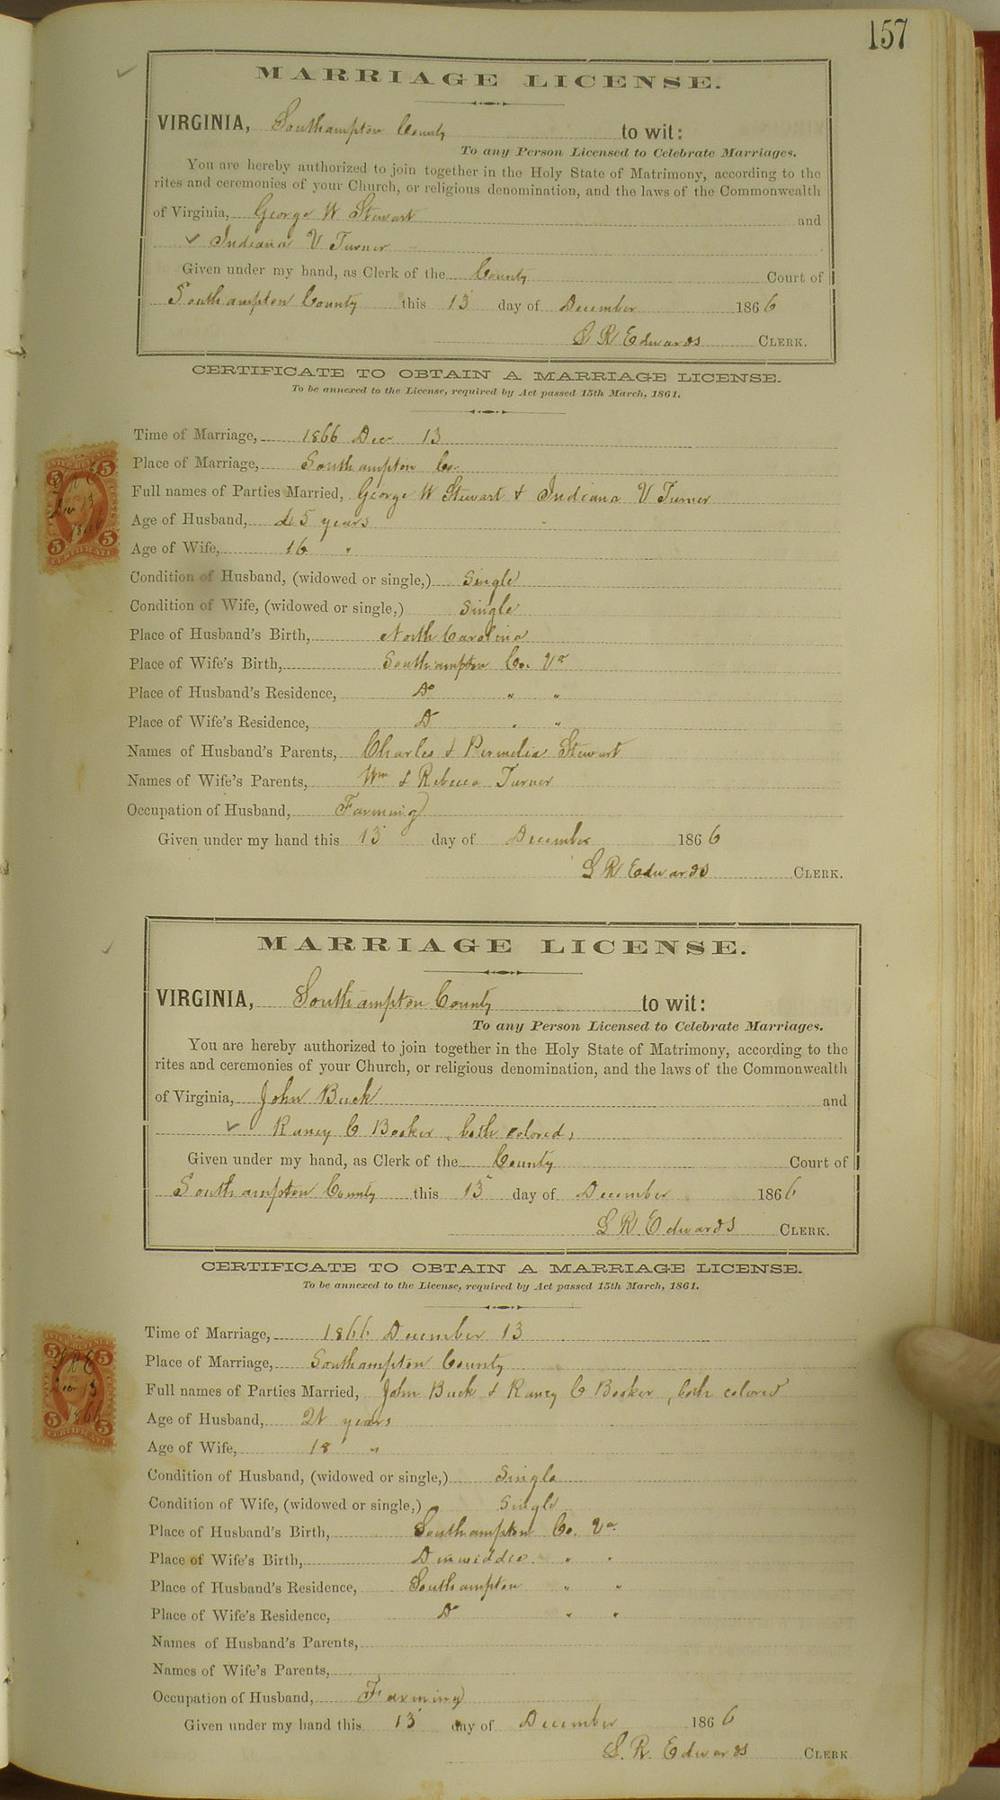 157
MARRIAGE LICENSE.
VIRGINIA, Southampton County to wit:
To any Person Licensed to Celebrate Marriages.
You are hereby authorized to join together in the Holy State of Matrimony, according to the
rites and ceremonies of your Church, or religious denomination, and the laws of the Commonwealth
of Virginia, George W Stewart and
Indiana V Turner
Given under my hand, as Clerk of the County Court of
Southampton County this 13 day of December 1866
L R Edwards CLERK.
CERTIFICATE TO OBTAIN A MARRIAGE LICENSE.
To be annexed to the License, required by Act passed 15th March, 1861.
Time of Marriage, 1866 Dec 13
Place of Marriage, Southampton Co.
Full names of Parties Married, George W Stewart & Indiana V Turner
Age of Husband, 45 years
Age of Wife, 16 "
Condition of Husband, (widowed or single,) Single
Condition of Wife, (widowed or single,) Single
Place of Husband's Birth, North Carolina
Place of Wife's Birth, Southampton Co. Va
Place of Husband's Residence, Do " "
Place of Wife's Residence, D " "
Names of Husband's Parents, Charles & Permelia Stewart
Names of Wife's Parents, Wm & Rebecca Turner
Occupation of Husband, Farming
Given under my hand this 13 day of December 1866
L R Edwards CLERK.
MARRIAGE LICENSE.
VIRGINIA, Southampton County to wit:
To any Person Licensed to Celebrate Marriages.
You are hereby authorized to join together in the Holy State of Matrimony, according to the
rites and ceremonies of your Church, or religious denomination, and the laws of the Commonwealth
of Virginia, John Buck and
Raney C Booker, both colored,
Given under my hand, as Clerk of the County Court of
Southampton County this 13 day of December 1866
L R. Edwards CLERK.
CERTIFICATE TO OBTAIN A MARRIAGE LICENSE.
To be annexed to the License, required by Act passed 15th March, 1861.
Time of Marriage, 1866 December 13
Place of Marriage, Southampton County
Full names of Parties Married, John Buck & Raney C Booker, both colored
Age of Husband, 21 years
Age of Wife, 18 "
Condition of Husband, (widowed or single,) Single
Condition of Wife, (widowed or single,) Single
Place of Husband's Birth, Southampton Co. Va.
Place of Wife's Birth, Dinwiddie " "
Place of Husband's Residence, Southampton " "
Place of Wife's Residence, Do " "
Names of Husband's Parents,
Names of Wife's Parents,
Occupation of Husband, Farming
Given under my hand this 13 day of December 1866
L. R. Edwards CLERK